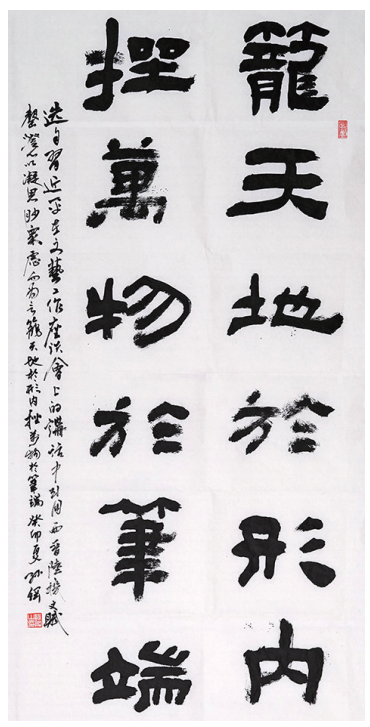 籠天地於形內
挫萬物於筆端
選自習近平在文藝工作座談會上的講話中引用西晉陸機文賦
罄澄心以凝思眇衆慮而為言籠天地於形內挫萬物於筆端癸卯夏孫